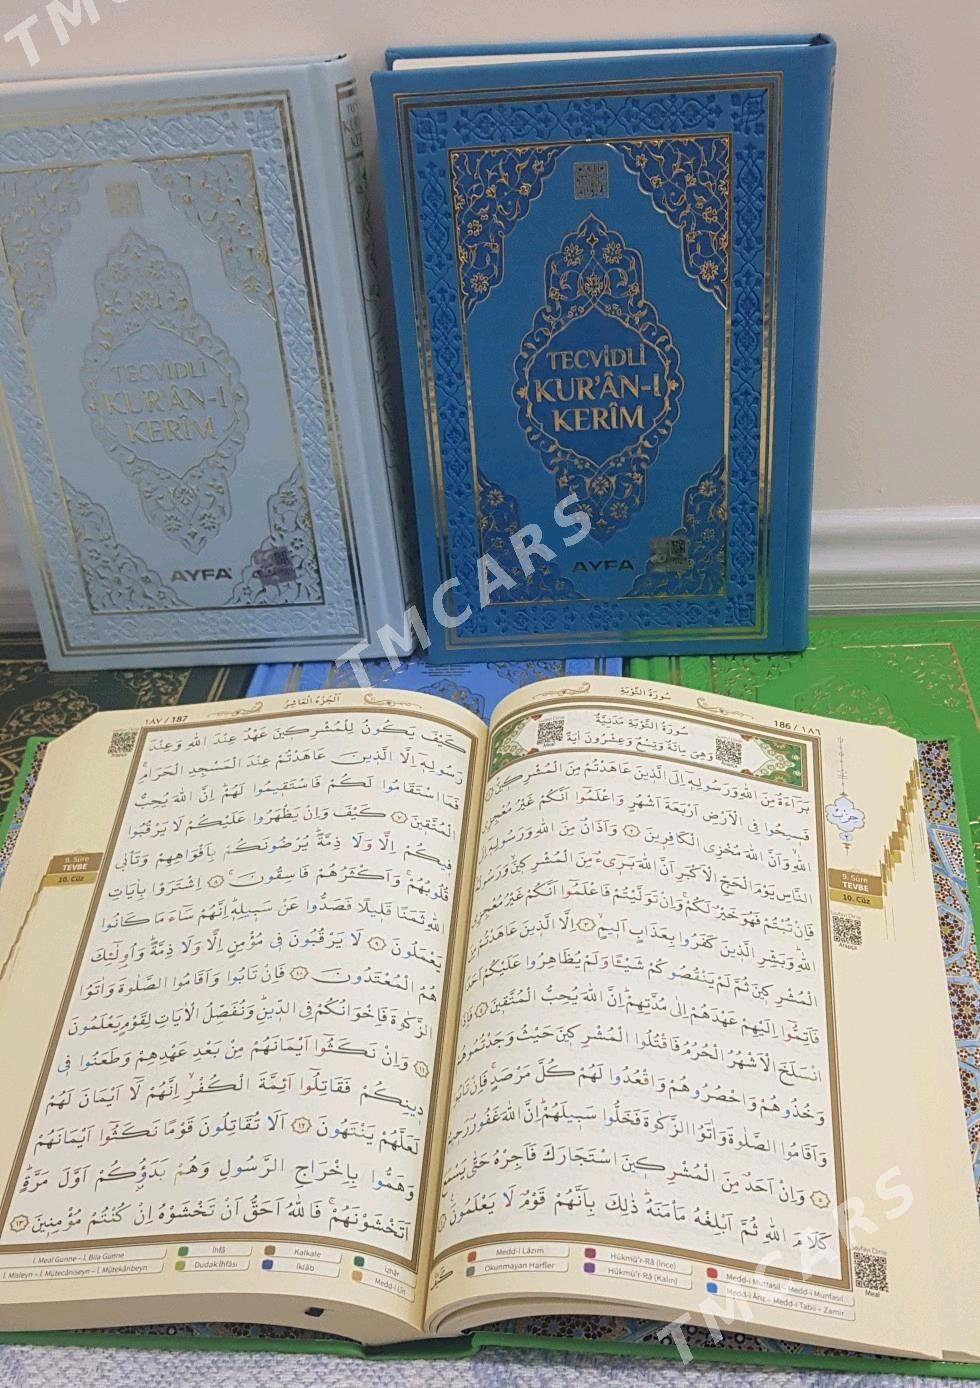 TMCARS
TECVİDLİ
KUR'ÂN-I
KERÎM
AYFA
TECVİDLİ
KUR'ÂN-I
KERÎM
AYFA
TMCARS
سُورَةُ التَّوْبَةِ
186 / ١٨٦
سُورَةُ التَّوْبَةِ مَدَنِيَّةٌ
وَهِيَ مِائَةٌ وَتِسْعٌ وَعِشْرُونَ اٰيَةً
Meal
بَرَٓاءَةٌ مِنَ اللّٰهِ وَرَسُولِهٖٓ اِلَى الَّذٖينَ عَاهَدْتُمْ مِنَ الْمُشْرِكٖينَ ﴿١﴾
فَسٖيحُوا فِي الْاَرْضِ اَرْبَعَةَ اَشْهُرٍ وَاعْلَمُٓوا اَنَّكُمْ غَيْرُ مُعْجِزِي
اللّٰهِ وَاَنَّ اللّٰهَ مُخْزِي الْكَافِرٖينَ ﴿٢﴾ وَاَذَانٌ مِنَ اللّٰهِ وَرَسُولِهٖٓ اِلَى
النَّاسِ يَوْمَ الْحَجِّ الْاَكْبَرِ اَنَّ اللّٰهَ بَرٖٓيءٌ مِنَ الْمُشْرِكٖينَ وَرَسُولُهُ
فَاِنْ تُبْتُمْ فَهُوَ خَيْرٌ لَكُمْ وَاِنْ تَوَلَّيْتُمْ فَاعْلَمُٓوا اَنَّكُمْ غَيْرُ مُعْجِزِي
اللّٰهِ وَبَشِّرِ الَّذٖينَ كَفَرُوا بِعَذَابٍ اَلٖيمٍ ﴿٣﴾ اِلَّا الَّذٖينَ عَاهَدْتُمْ مِنَ
الْمُشْرِكٖينَ ثُمَّ لَمْ يَنْقُصُوكُمْ شَيْـًٔا وَلَمْ يُظَاهِرُوا عَلَيْكُمْ اَحَدًا
فَاَتِمُّٓوا اِلَيْهِمْ عَهْدَهُمْ اِلٰى مُدَّتِهِمْ اِنَّ اللّٰهَ يُحِبُّ الْمُتَّقٖينَ ﴿٤﴾ فَاِذَا
انْسَلَخَ الْاَشْهُرُ الْحُرُمُ فَاقْتُلُوا الْمُشْرِكٖينَ حَيْثُ وَجَدْتُمُوهُمْ
وَخُذُوهُمْ وَاحْصُرُوهُمْ وَاقْعُدُوا لَهُمْ كُلَّ مَرْصَدٍ فَاِنْ تَابُوا
وَاَقَامُوا الصَّلٰوةَ وَاٰتَوُا الزَّكٰوةَ فَخَلُّوا سَبٖيلَهُمْ اِنَّ اللّٰهَ غَفُورٌ رَحٖيمٌ
﴿٥﴾ وَاِنْ اَحَدٌ مِنَ الْمُشْرِكٖينَ اسْتَجَارَكَ فَاَجِرْهُ حَتّٰى يَسْمَعَ
كَلَامَ اللّٰهِ ثُمَّ اَبْلِغْهُ مَأْمَنَهُ ذٰلِكَ بِاَنَّهُمْ قَوْمٌ لَا يَعْلَمُونَ ﴿٦﴾
حزب
9. Sûre
TEVBE
10. Cüz
Sayfayı Dinle
Arapça
Sayfayı Dinle
Meal
Medd-i Lâzım
Okunmayan Harfler
Hükmü'r-Râ (İnce)
Hükmü'r-Râ (Kalın)
Medd-i Muttasıl – Medd-i Munfasıl
Medd-i Ârız – Medd-i Tabîi – Zamir
الْجُزْءُ الْعَاشِرُ
١٨٧ / 187
كَيْفَ يَكُونُ لِلْمُشْرِكٖينَ عَهْدٌ عِنْدَ اللّٰهِ وَعِنْدَ
رَسُولِهٖٓ اِلَّا الَّذٖينَ عَاهَدْتُمْ عِنْدَ الْمَسْجِدِ الْحَرَامِ
فَمَا اسْتَقَامُوا لَكُمْ فَاسْتَقٖيمُوا لَهُمْ اِنَّ اللّٰهَ يُحِبُّ
الْمُتَّقٖينَ ﴿٧﴾ كَيْفَ وَاِنْ يَظْهَرُوا عَلَيْكُمْ لَا يَرْقُبُوا
فٖيكُمْ اِلًّا وَلَا ذِمَّةً يُرْضُونَكُمْ بِاَفْوَاهِهِمْ وَتَأْبٰى
قُلُوبُهُمْ وَاَكْثَرُهُمْ فَاسِقُونَ ﴿٨﴾ اِشْتَرَوْا بِاٰيَاتِ
اللّٰهِ ثَمَنًا قَلٖيلًا فَصَدُّوا عَنْ سَبٖيلِهٖ اِنَّهُمْ سَٓاءَ مَا كَانُوا
يَعْمَلُونَ ﴿٩﴾ لَا يَرْقُبُونَ فٖي مُؤْمِنٍ اِلًّا وَلَا ذِمَّةً وَاُولٰٓئِكَ
هُمُ الْمُعْتَدُونَ ﴿١٠﴾ فَاِنْ تَابُوا وَاَقَامُوا الصَّلٰوةَ وَاٰتَوُا
الزَّكٰوةَ فَاِخْوَانُكُمْ فِي الدّٖينِ وَنُفَصِّلُ الْاٰيَاتِ لِقَوْمٍ يَعْلَمُونَ
﴿١١﴾ وَاِنْ نَكَثُٓوا اَيْمَانَهُمْ مِنْ بَعْدِ عَهْدِهِمْ وَطَعَنُوا فٖي
دٖينِكُمْ فَقَاتِلُٓوا اَئِمَّةَ الْكُفْرِ اِنَّهُمْ لَٓا اَيْمَانَ لَهُمْ
لَعَلَّهُمْ يَنْتَهُونَ ﴿١٢﴾ اَلَا تُقَاتِلُونَ قَوْمًا نَكَثُٓوا اَيْمَانَهُمْ
وَهَمُّوا بِاِخْرَاجِ الرَّسُولِ وَهُمْ بَدَؤُكُمْ اَوَّلَ مَرَّةٍ
اَتَخْشَوْنَهُمْ فَاللّٰهُ اَحَقُّ اَنْ تَخْشَوْهُ اِنْ كُنْتُمْ مُؤْمِنٖينَ ﴿١٣﴾
9. Sûre
TEVBE
10. Cüz
İ. Meal Gunne – İ. Bila Gunne
İ. Misleyn – İ. Mütecâniseyn – İ. Mütekâribeyn
İhfâ
Dudak İhfâsı
Kalkale
İklâb
İzhâr
Medd-i Lîn
TMCARS